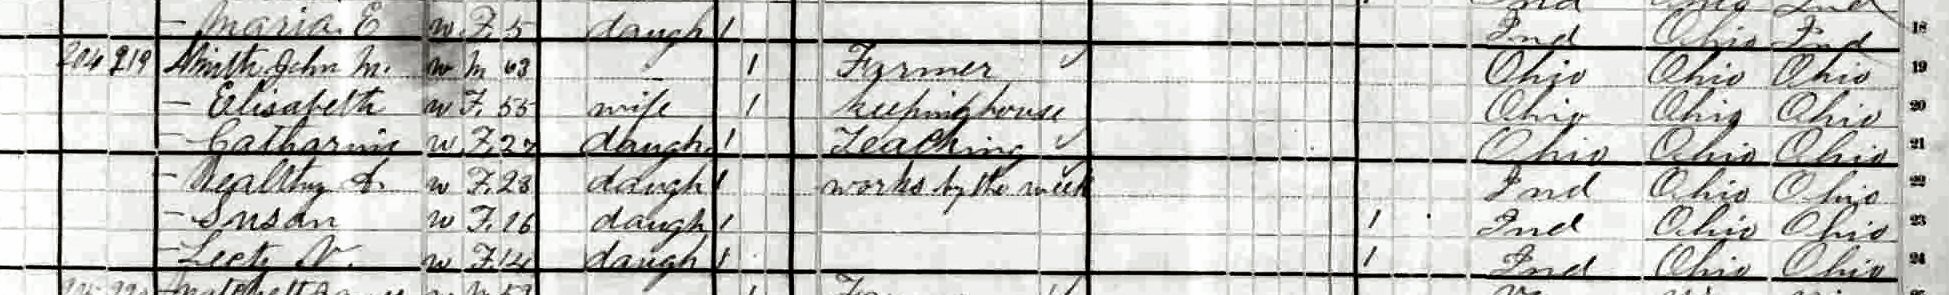 — Maria E w F. 5 daugh 1 Ind Ohio Ind 18
204 219 Smith John M. w M 63 1 Farmer Ohio Ohio Ohio 19
— Elisabeth w F. 55 wife 1 keeping house Ohio Ohio Ohio 20
— Catharine w F. 27 daugh. 1 Teaching Ohio Ohio Ohio 21
— Wealthy A. w F. 23 daugh 1 works by the week Ind Ohio Ohio 22
— Susan w F. 16 daugh 1 1 Ind Ohio Ohio 23
— w F. 14 daugh 1 1 Ind Ohio Ohio 24